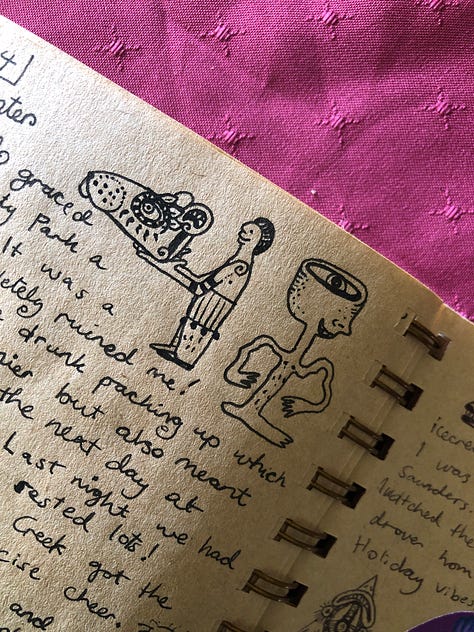 4
graced
ty Park a
It was a
letely ruined me!
drunk packing up which
nier but also meant
the next day at
Last night we had
rested lots!
Creek got the
cise cheer.
and
icecrea
I was
Saunders.
watched the
drover hom
Holiday vibes